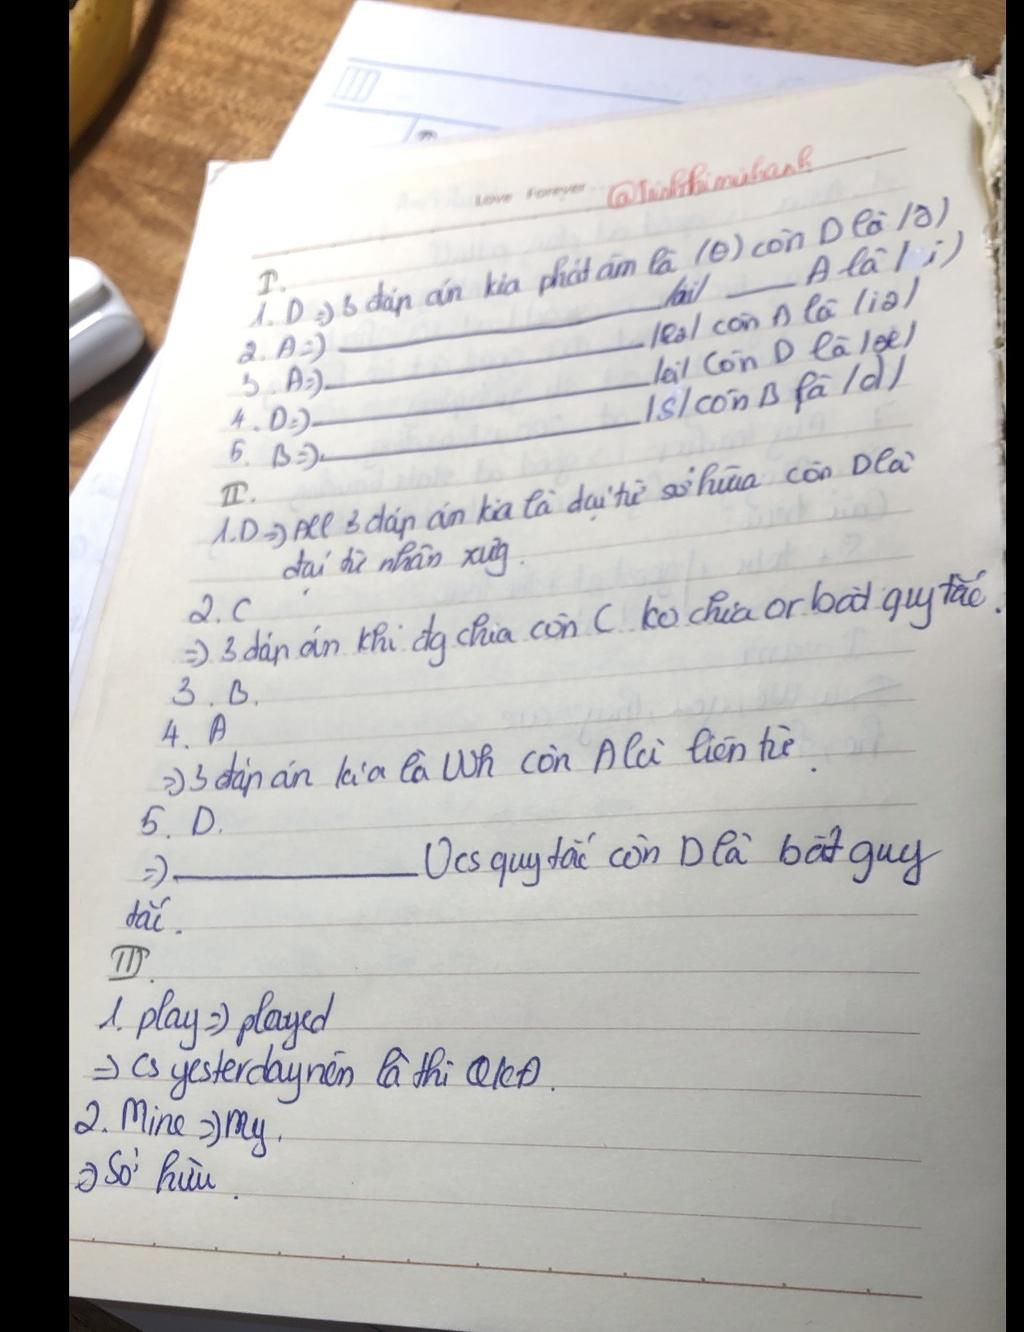 Love Forever @Trinhthiminhanh
I.
1. D => 3 đáp án kia phát âm là /θ/ còn D là /ð/
2. A => /ai/ A là / i/
3. A => /eə/ còn A là /iə/
4. D => /ei/ còn D là /æ/
5. B => /s/ còn B là /d/
II.
1. D => All 3 đáp án kia là đại từ sở hữu còn D là
đại từ nhân xưng.
2. C
=> 3 đáp án khi đg chia còn C ko chia or bất quy tắc.
3. B.
4. A
=> 3 đáp án kia là Wh còn A là liên từ.
5. D.
=> quy tắc còn D là bất quy
tắc.
III.
1. play => played
=> Cs yesterday nên là thì QKĐ.
2. Mine => My.
=> Sở hữu.